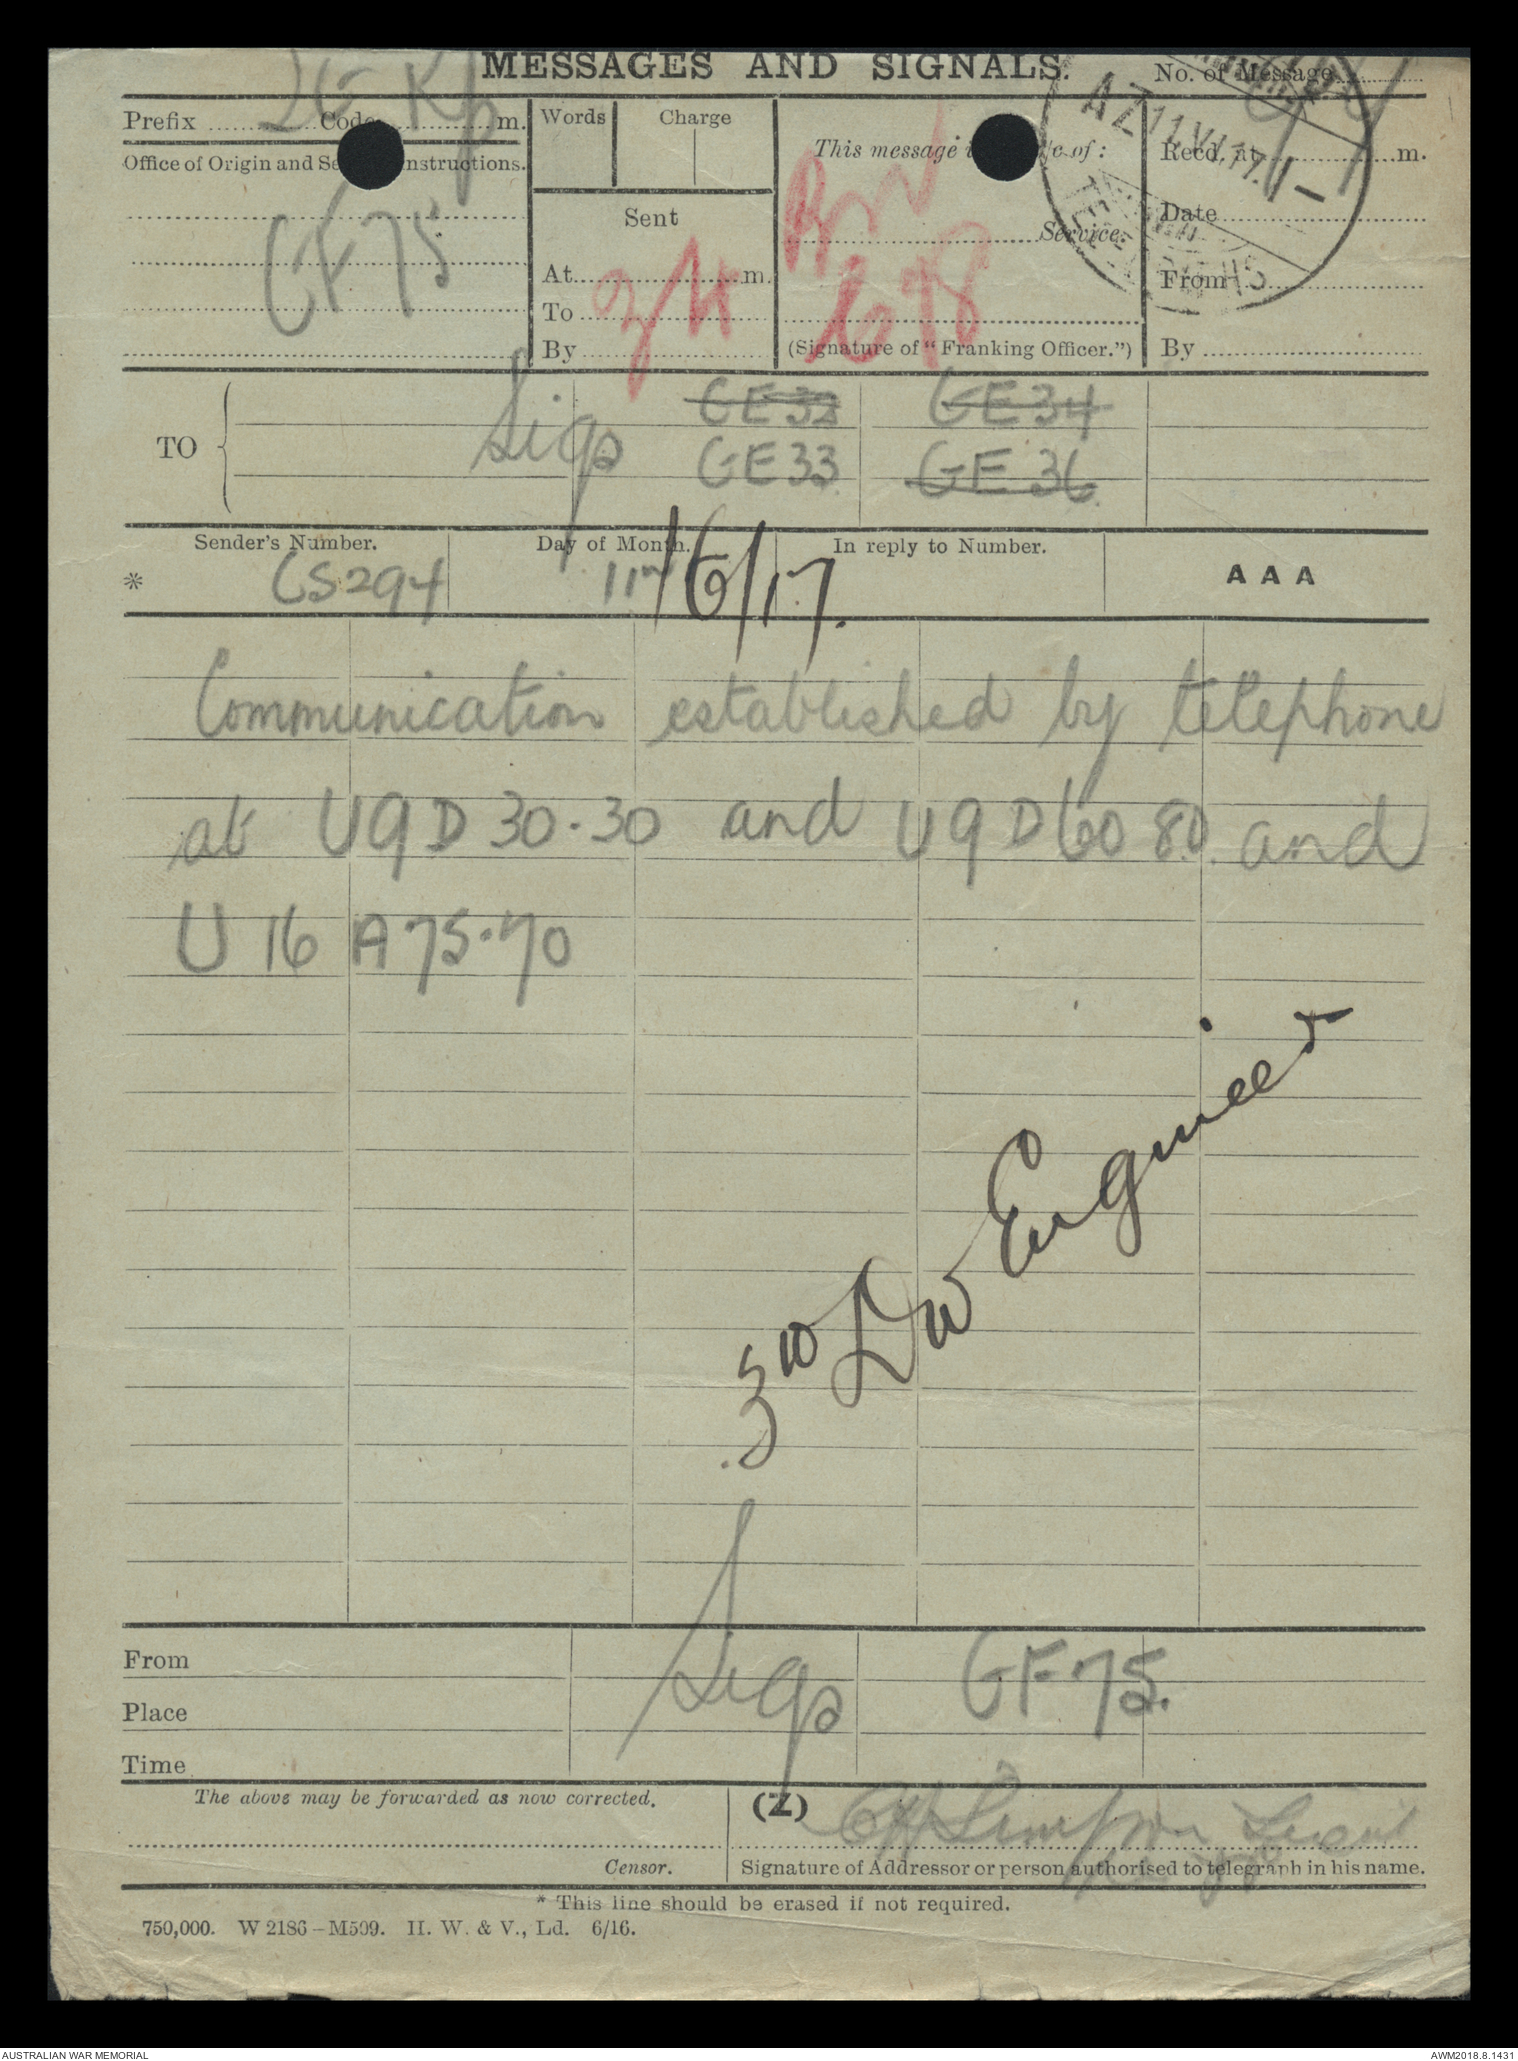 MESSAGES AND SIGNALS.
No. of Message
Prefix Code m.
Words Charge
This message is on a/c of:
Recd. at m.
Office of Origin and Service Instructions.
AZ
11.VI.17.
TELEGRAPHS
GF75
Sent
Service.
Date
At m.
678
From
To
By
(Signature of "Franking Officer.")
By
TO
Sigs
GE 32 GE 34
GE 33 GE 36
Sender's Number.
Day of Month.
In reply to Number.
AAA
* CS294
11th/6/17.
Communication established by telephone
at U9D 30.30 and U9D60 80. and
U 16 A 75.70
3rd Div Engineers
From
Place
Time
Sigs GF75.
The above may be forwarded as now corrected.
(Z)
Simpson Lieut
Censor.
Signature of Addressor or person authorised to telegraph in his name.
* This line should be erased if not required.
750,000. W 2186–M509. H. W. & V., Ld. 6/16.
AUSTRALIAN WAR MEMORIAL
AWM2018.8.1431